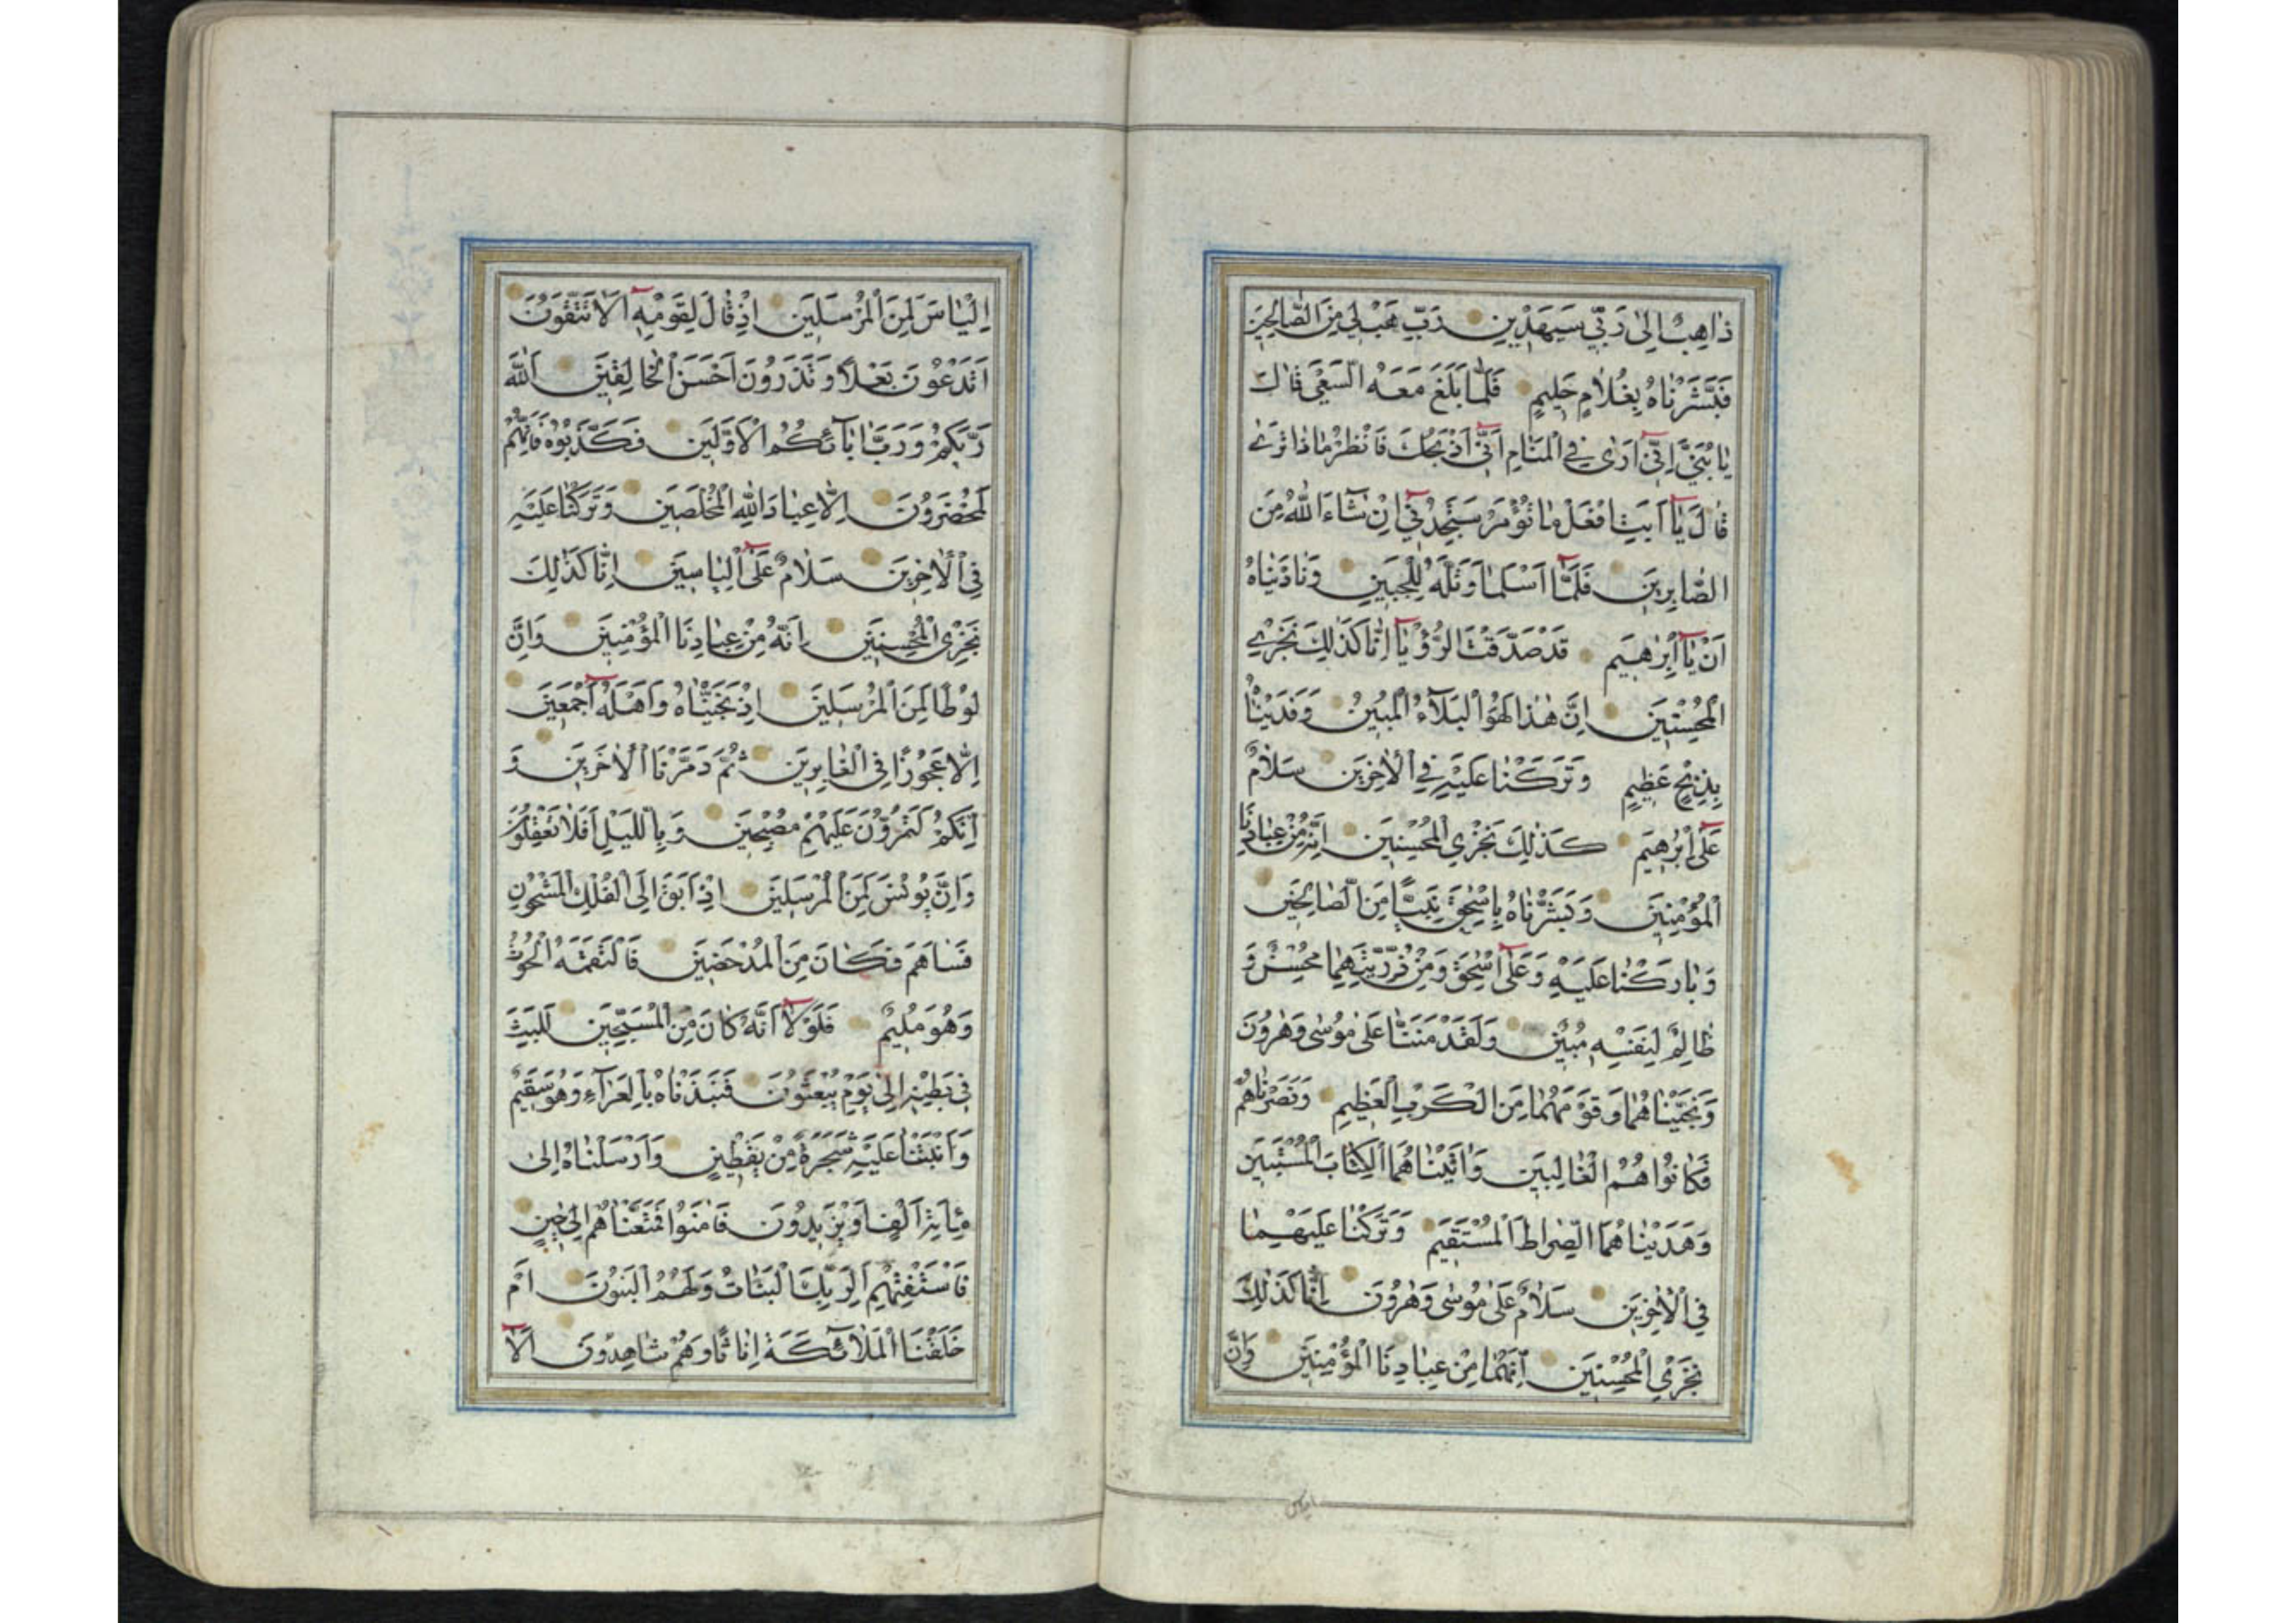 ذَاهِبٌ اِلٰى رَبّي سَيَهْدينِ رَبِّ هَبْ لي مِنَ الصَّالِحينَ
فَبَشَّرْنَاهُ بِغُلَامٍ حَليمٍ فَلَمَّا بَلَغَ مَعَهُ السَّعْيَ قَالَ
يَا بُنَيَّ اِنّي اَرٰى فِي الْمَنَامِ اَنّي اَذْبَحُكَ فَانْظُرْ مَاذَا تَرٰى
قَالَ يَا اَبَتِ افْعَلْ مَا تُؤْمَرُ سَتَجِدُني اِنْ شَاءَ اللّٰهُ مِنَ
الصَّابِرينَ فَلَمَّا اَسْلَمَا وَتَلَّهُ لِلْجَبينِ وَنَادَيْنَاهُ
اَنْ يَا اِبْرٰهيمُ قَدْ صَدَّقْتَ الرُّؤْيَا اِنَّا كَذٰلِكَ نَجْزِي
الْمُحْسِنينَ اِنَّ هٰذَا لَهُوَ الْبَلَاءُ الْمُبينُ وَفَدَيْنَاهُ
بِذِبْحٍ عَظيمٍ وَتَرَكْنَا عَلَيْهِ فِي الْاٰخِرينَ سَلَامٌ
عَلٰى اِبْرٰهيمَ كَذٰلِكَ نَجْزِي الْمُحْسِنينَ اِنَّهُ مِنْ عِبَادِنَا
الْمُؤْمِنينَ وَبَشَّرْنَاهُ بِاِسْحٰقَ نَبِيًّا مِنَ الصَّالِحينَ
وَبَارَكْنَا عَلَيْهِ وَعَلٰى اِسْحٰقَ وَمِنْ ذُرِّيَّتِهِمَا مُحْسِنٌ وَ
ظَالِمٌ لِنَفْسِهِ مُبينٌ وَلَقَدْ مَنَنَّا عَلٰى مُوسٰى وَهٰرُونَ
وَنَجَّيْنَاهُمَا وَقَوْمَهُمَا مِنَ الْكَرْبِ الْعَظيمِ وَنَصَرْنَاهُمْ
فَكَانُوا هُمُ الْغَالِبينَ وَاٰتَيْنَاهُمَا الْكِتَابَ الْمُسْتَبينَ
وَهَدَيْنَاهُمَا الصِّرَاطَ الْمُسْتَقيمَ وَتَرَكْنَا عَلَيْهِمَا
فِي الْاٰخِرينَ سَلَامٌ عَلٰى مُوسٰى وَهٰرُونَ اِنَّا كَذٰلِكَ
نَجْزِي الْمُحْسِنينَ اِنَّهُمَا مِنْ عِبَادِنَا الْمُؤْمِنينَ وَاِنَّ
الياس
اِلْيَاسَ لَمِنَ الْمُرْسَلينَ اِذْ قَالَ لِقَوْمِهِ اَلَا تَتَّقُونَ
اَتَدْعُونَ بَعْلًا وَتَذَرُونَ اَحْسَنَ الْخَالِقينَ اَللّٰهَ
رَبَّكُمْ وَرَبَّ اٰبَائِكُمُ الْاَوَّلينَ فَكَذَّبُوهُ فَاِنَّهُمْ
لَمُحْضَرُونَ اِلَّا عِبَادَ اللّٰهِ الْمُخْلَصينَ وَتَرَكْنَا عَلَيْهِ
فِي الْاٰخِرينَ سَلَامٌ عَلٰى اِلْيَاسينَ اِنَّا كَذٰلِكَ
نَجْزِي الْمُحْسِنينَ اِنَّهُ مِنْ عِبَادِنَا الْمُؤْمِنينَ وَاِنَّ
لُوطًا لَمِنَ الْمُرْسَلينَ اِذْ نَجَّيْنَاهُ وَاَهْلَهُ اَجْمَعينَ
اِلَّا عَجُوزًا فِي الْغَابِرينَ ثُمَّ دَمَّرْنَا الْاٰخَرينَ وَ
اِنَّكُمْ لَتَمُرُّونَ عَلَيْهِمْ مُصْبِحينَ وَبِاللَّيْلِ اَفَلَا تَعْقِلُونَ
وَاِنَّ يُونُسَ لَمِنَ الْمُرْسَلينَ اِذْ اَبَقَ اِلَى الْفُلْكِ الْمَشْحُونِ
فَسَاهَمَ فَكَانَ مِنَ الْمُدْحَضينَ فَالْتَقَمَهُ الْحُوتُ
وَهُوَ مُليمٌ فَلَوْلَا اَنَّهُ كَانَ مِنَ الْمُسَبِّحينَ لَلَبِثَ
في بَطْنِهِ اِلٰى يَوْمِ يُبْعَثُونَ فَنَبَذْنَاهُ بِالْعَرَاءِ وَهُوَ سَقيمٌ
وَاَنْبَتْنَا عَلَيْهِ شَجَرَةً مِنْ يَقْطينٍ وَاَرْسَلْنَاهُ اِلٰى
مِائَةِ اَلْفٍ اَوْ يَزيدُونَ فَاٰمَنُوا فَمَتَّعْنَاهُمْ اِلٰى حينٍ
فَاسْتَفْتِهِمْ اَلِرَبِّكَ الْبَنَاتُ وَلَهُمُ الْبَنُونَ اَمْ
خَلَقْنَا الْمَلَائِكَةَ اِنَاثًا وَهُمْ شَاهِدُونَ اَلَا